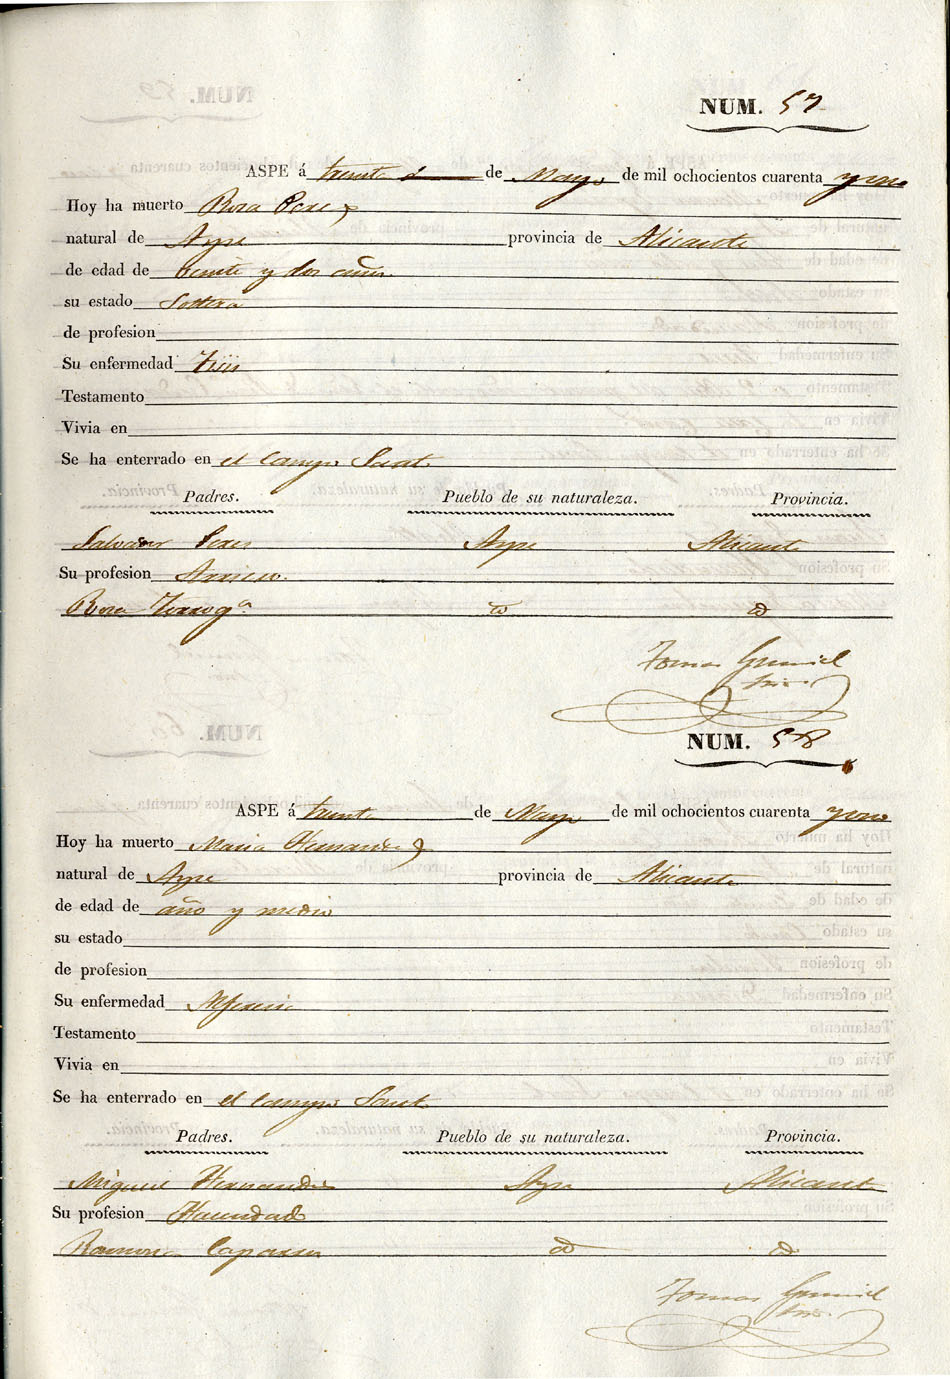 NUM. 57
ASPE á treinta de Mayo de mil ochocientos cuarenta y uno
Hoy ha muerto Rosa Peres
natural de Aspe provincia de Alicante
de edad de veinte y dos años
su estado Soltera
de profesion
Su enfermedad Tisis
Testamento
Vivia en
Se ha enterrado en el Campo Sant
Padres. Pueblo de su naturaleza. Provincia.
Salvador Peres Aspe Alicante
Su profesion Arriero.
Rosa id id
Tomas
NUM. 58
ASPE á treinta de Mayo de mil ochocientos cuarenta y uno
Hoy ha muerto Maria Hernandez
natural de Aspe provincia de Alicante
de edad de año y medio
su estado
de profesion
Su enfermedad Alferecia
Testamento
Vivia en
Se ha enterrado en el Campo Sant
Padres. Pueblo de su naturaleza. Provincia.
Miguel Hernandez Aspe Alicante
Su profesion Hacendado
Ramona id id
Tomas